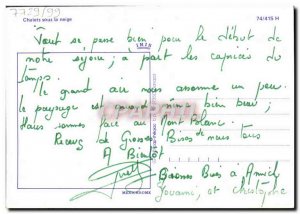 7729/99
Chalets sous la neige
74/415 H
Tout se passe bien pour le début de
notre séjour, à part les caprices du
temps.
Le grand air nous assomme un peu.
le paysage est quand même bien beau ;
Nous sommes face au Mont Blanc.
Recevez de Grosses Bises de nous tous
A Bientôt
Bonnes Bises à
et Christophe